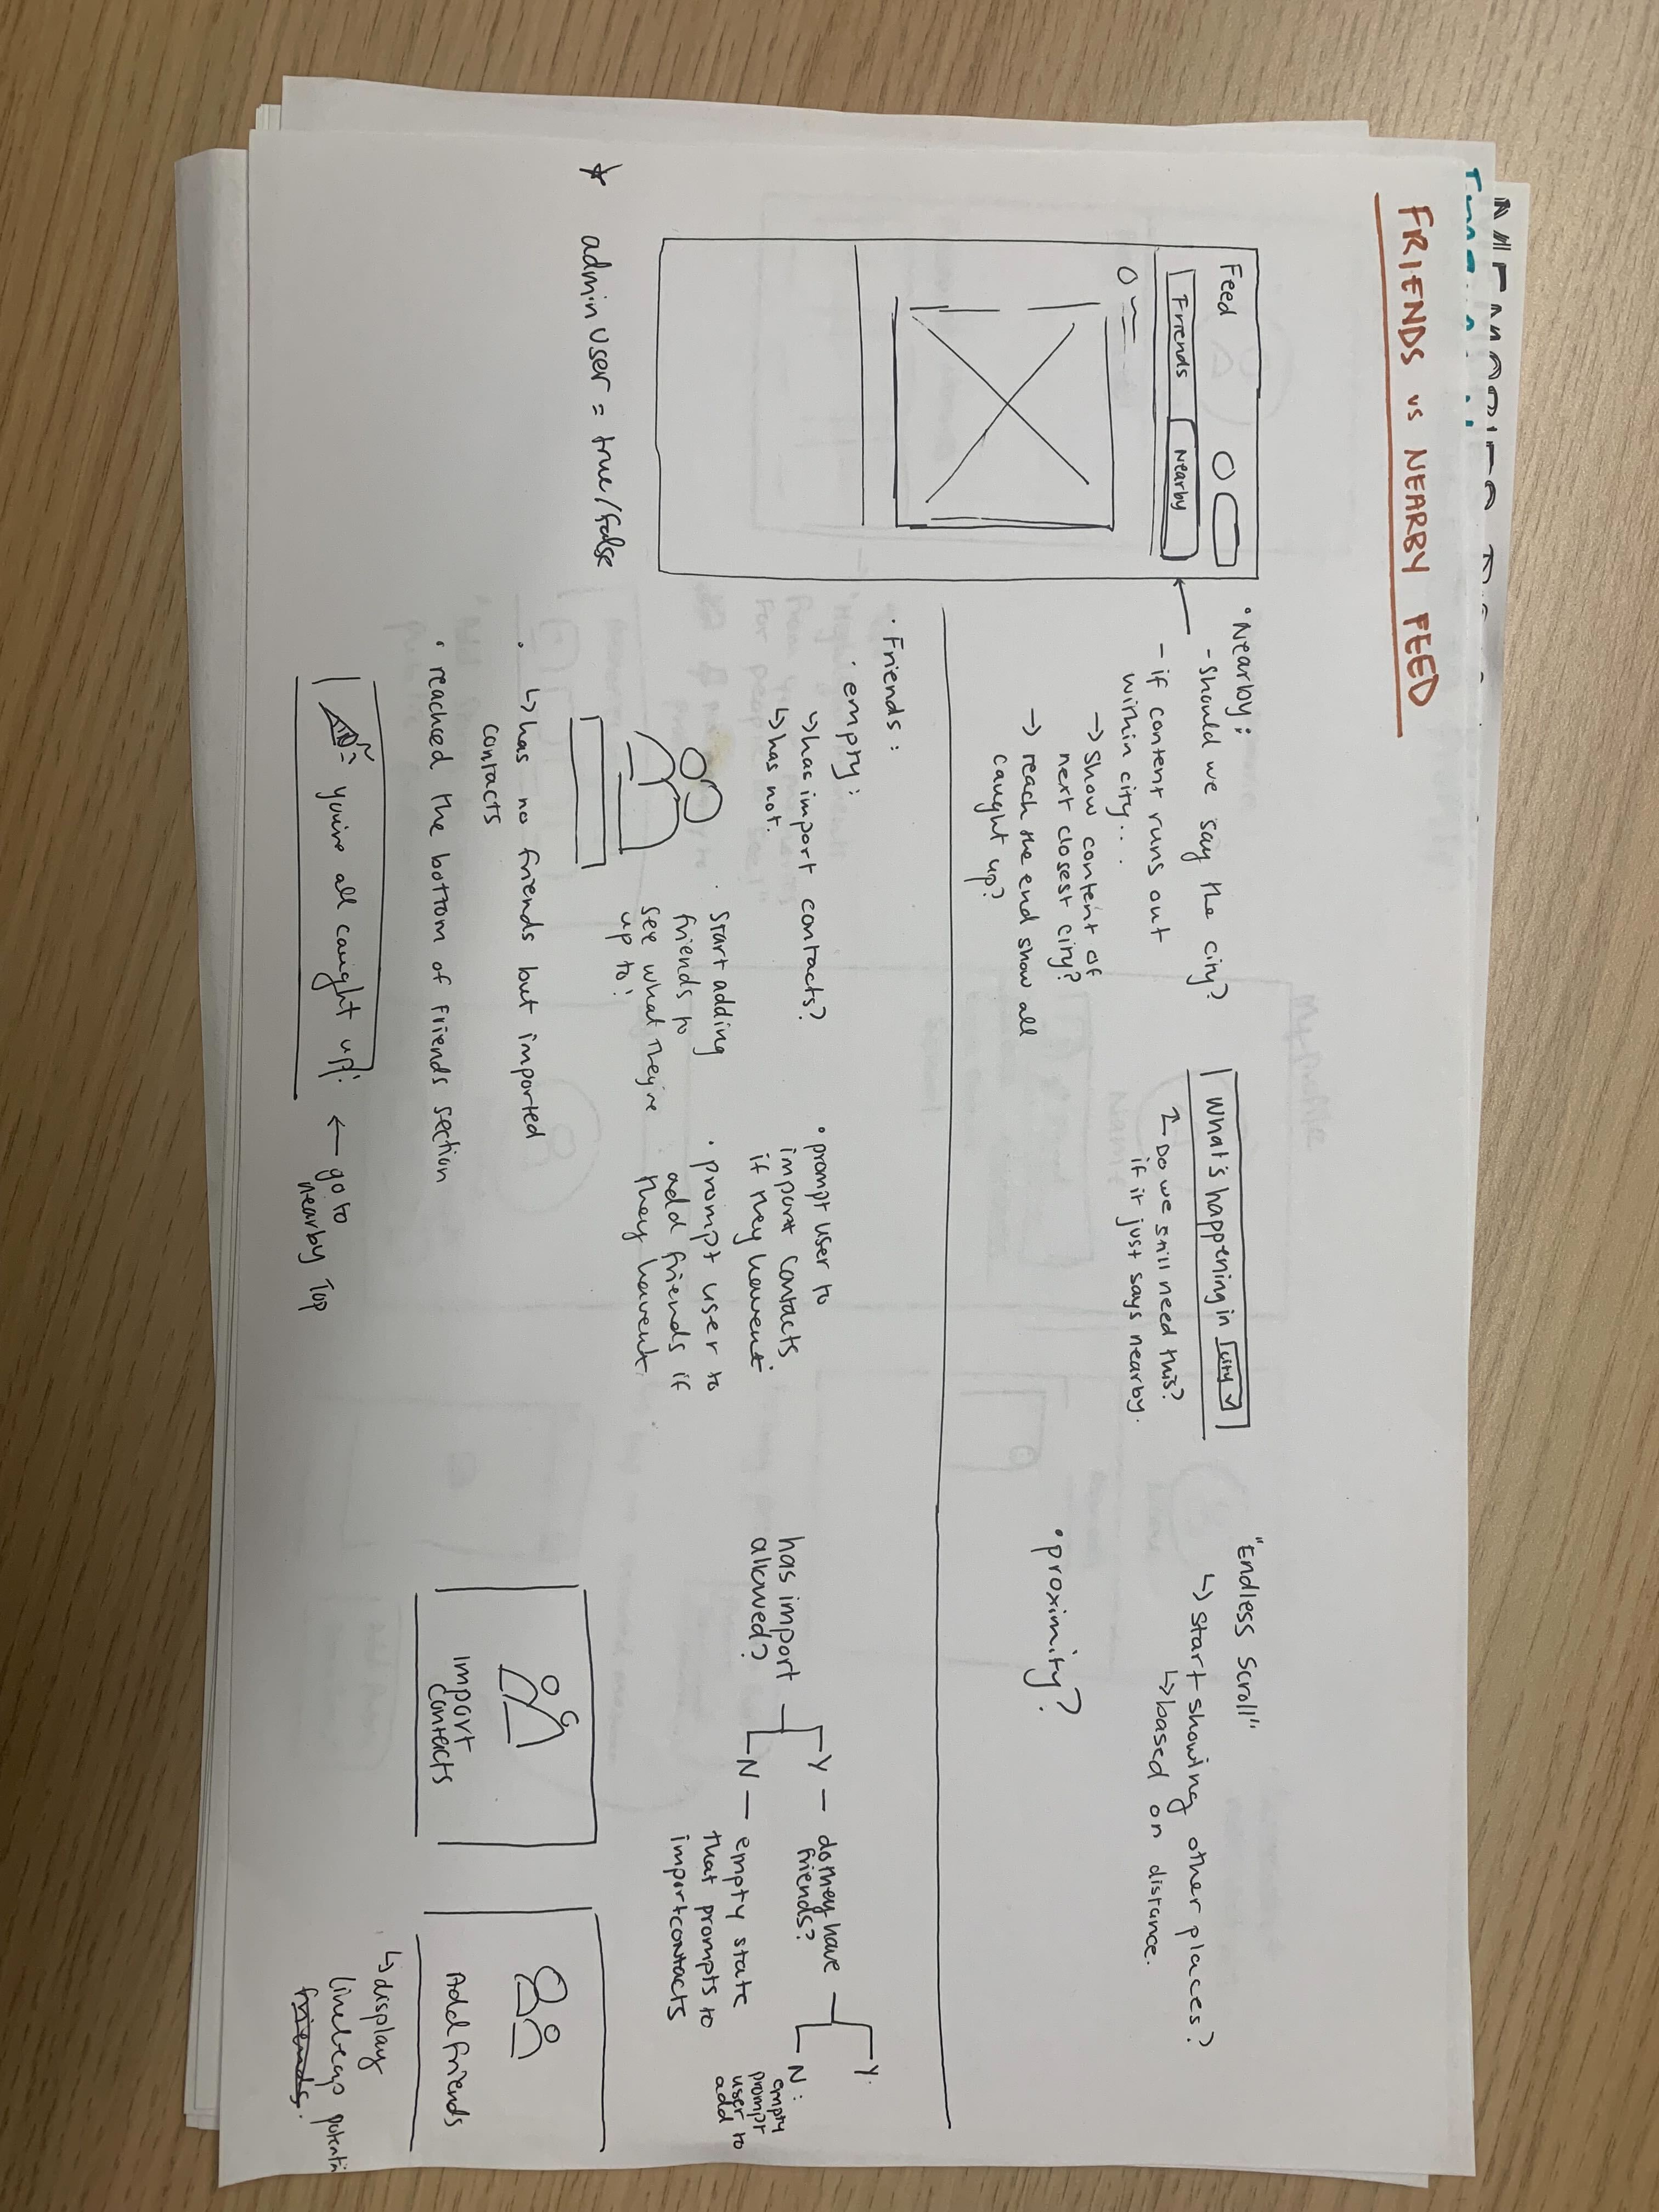 FRIENDS vs NEARBY FEED
Feed
Friends
Nearby
* admin user = true/false
• Nearby:
- should we say the city?
- if content runs out
within city...
→ show content of
next closest city?
→ reach the end show all
caught up?
What's happening in city
↳ Do we still need this?
if it just says nearby.
"Endless scroll"
↳ start showing other places?
↳ based on distance.
• proximity?
• Friends:
• empty:
↳ has import contacts?
↳ has not.
• Start adding
friends to
see what they're
up to!
• ↳ has no friends but imported
contacts
• reached the bottom of friends section
you're all caught up!
← go to
nearby top
• prompt user to
import contacts
if they havent
• prompt user to
add friends if
they havent
has import
allowed?
Y - do they have
friends?
Y.
N:
empty
prompt
user to
add
N - empty state
that prompts to
import contacts
import
contacts
Add friends
↳ display
lineleap potenti
friends.